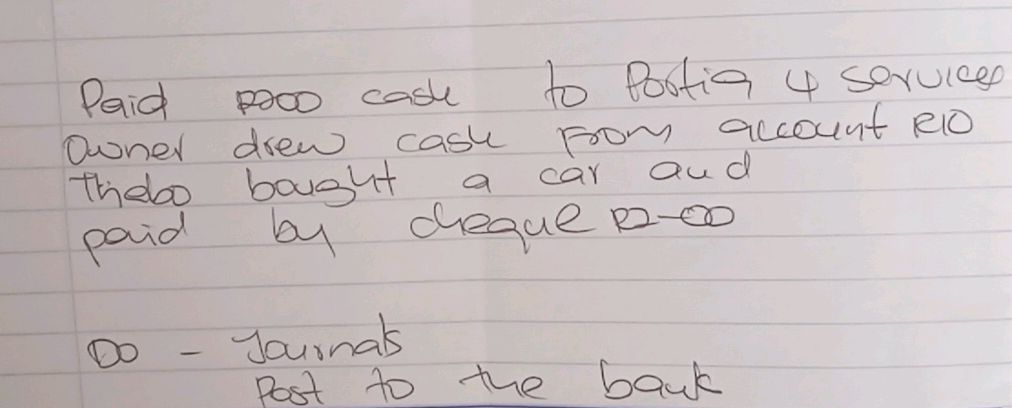 Paid R200 cash to Portia 4 services
Owner drew cash From account R10
Thebo bought a car and
paid by cheque R200
DO - Journals
Post to the bank